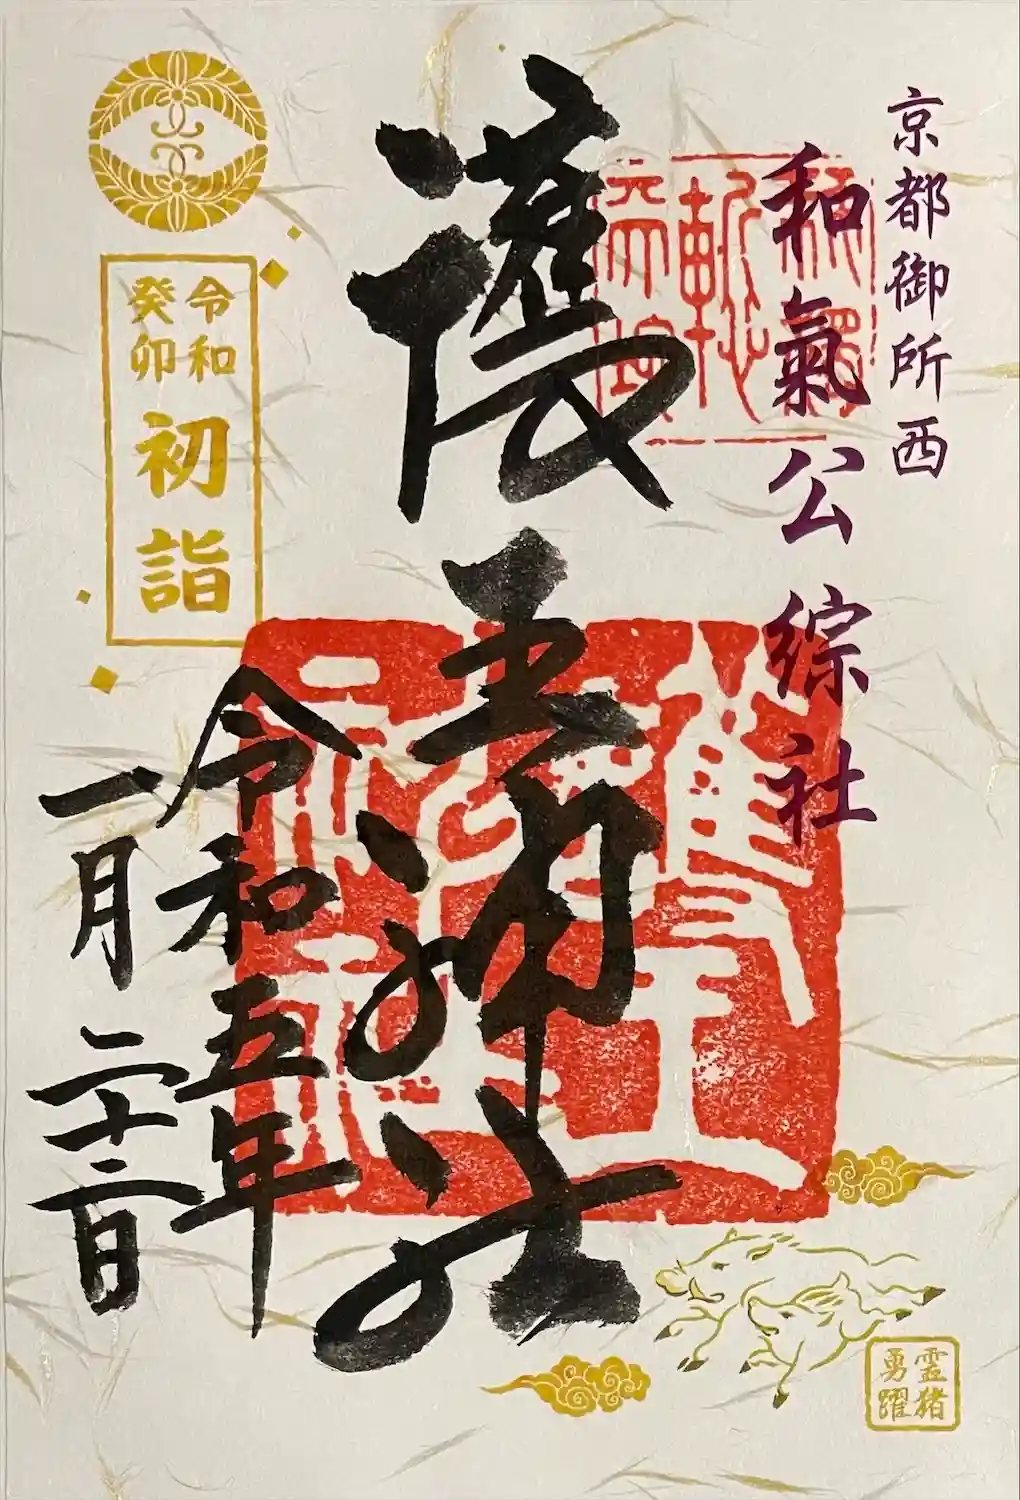 京都御所西
和氣公綜社
護王神社
令和
癸卯
初詣
令和五年
一月二十二日
霊猪
勇躍